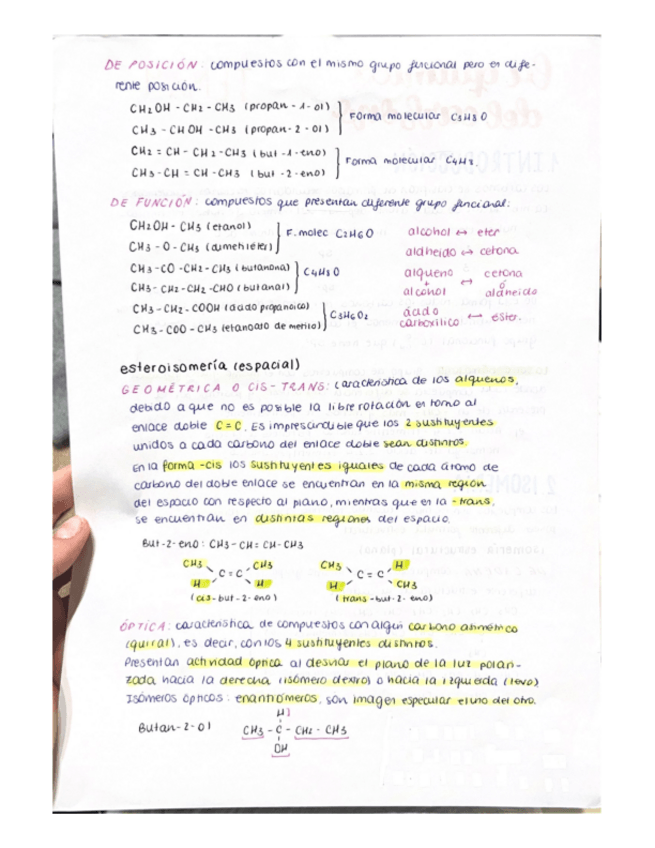 DE POSICIÓN: compuestos con el mismo grupo funcional pero en dife-
rente posición.
CH2OH - CH2 - CH3 (propan - 1 - ol)
CH3 - CHOH - CH3 (propan - 2 - ol)
Forma molecular C3H8O
CH2 = CH - CH2 - CH3 (but - 1 - eno)
CH3 - CH = CH - CH3 (but - 2 - eno)
Forma molecular C4H8.
DE FUNCIÓN: compuestos que presentan diferente grupo funcional:
CH2OH - CH3 (etanol)
CH3 - O - CH3 (dimetileter)
F. molec C2H6O
CH3 - CO - CH2 - CH3 (butanona)
CH3 - CH2 - CH2 - CHO (butanal)
C4H8O
CH3 - CH2 - COOH (ácido propanoico)
CH3 - COO - CH3 (etanoato de metilo)
C3H6O2
alcohol ↔ eter
aldheido ↔ cetona
alqueno + alcohol ↔ cetona ó aldheido
ácido carboxílico ↔ ester.
esteroisomería (espacial)
GEOMÉTRICA O CIS-TRANS: característica de los alquenos,
debido a que no es posible la libre rotación en torno al
enlace doble C=C. Es imprescindible que los 2 sustituyentes
unidos a cada carbono del enlace doble sean distintos.
En la forma -cis los sustituyentes iguales de cada átomo de
carbono del doble enlace se encuentran en la misma región
del espacio con respecto al plano, mientras que en la -trans,
se encuentran en distintas regiones del espacio.
But-2-eno: CH3 - CH = CH - CH3
CH3 CH3 CH3 H
C = C C = C
H H H CH3
(cis-but-2-eno) (trans-but-2-eno)
ÓPTICA: característica de compuestos con algún carbono asimétrico
(quiral), es decir, con los 4 sustituyentes distintos.
Presentan actividad óptica al desviar el plano de la luz polari-
zada hacia la derecha (isómero dextro) o hacia la izquierda (levo).
Isómeros ópticos: enantiómeros, son imagen especular el uno del otro.
H
Butan-2-ol CH3 - C - CH2 - CH3
OH